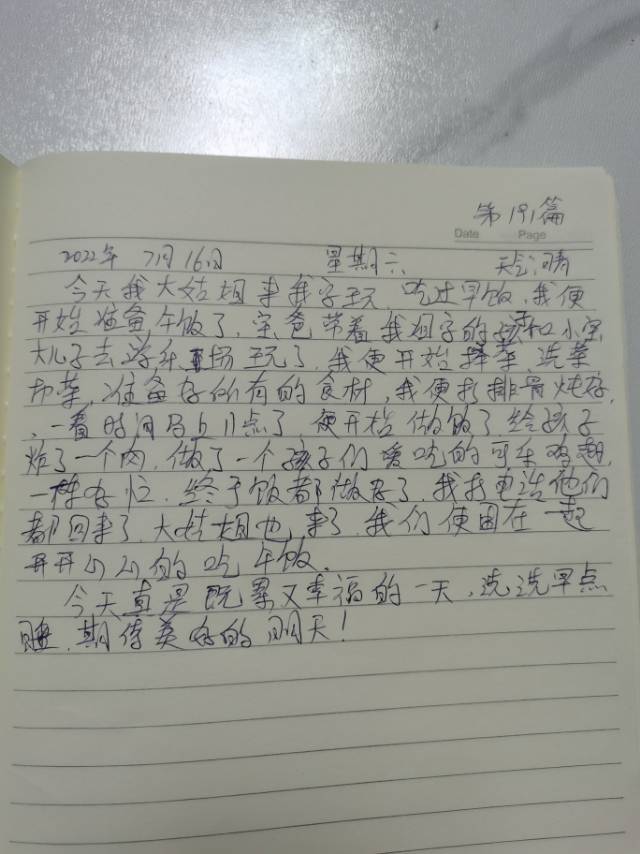 第191篇
Date Page
2022年 7月16日 星期六 天气:晴
今天我大姑姐来我家玩,吃过早饭,我便
开始准备午饭了,宝爸带着我姐家的孩和小宝
大儿子去游乐场玩了,我便开始择菜,洗菜
切菜,准备好所有的食材,我便把排骨炖好,
一看时间马上11点了,便开始做饭了,给孩子
炸了一个肉,做了一个孩子们爱吃的可乐鸡翅,
一阵好忙,终于饭都做好了,我打电话他们
都回来了,大姑姐也来了,我们便围在一起
开开心心的吃午饭。
今天真是既累又幸福的一天,洗洗早点
睡,期待美好的明天!